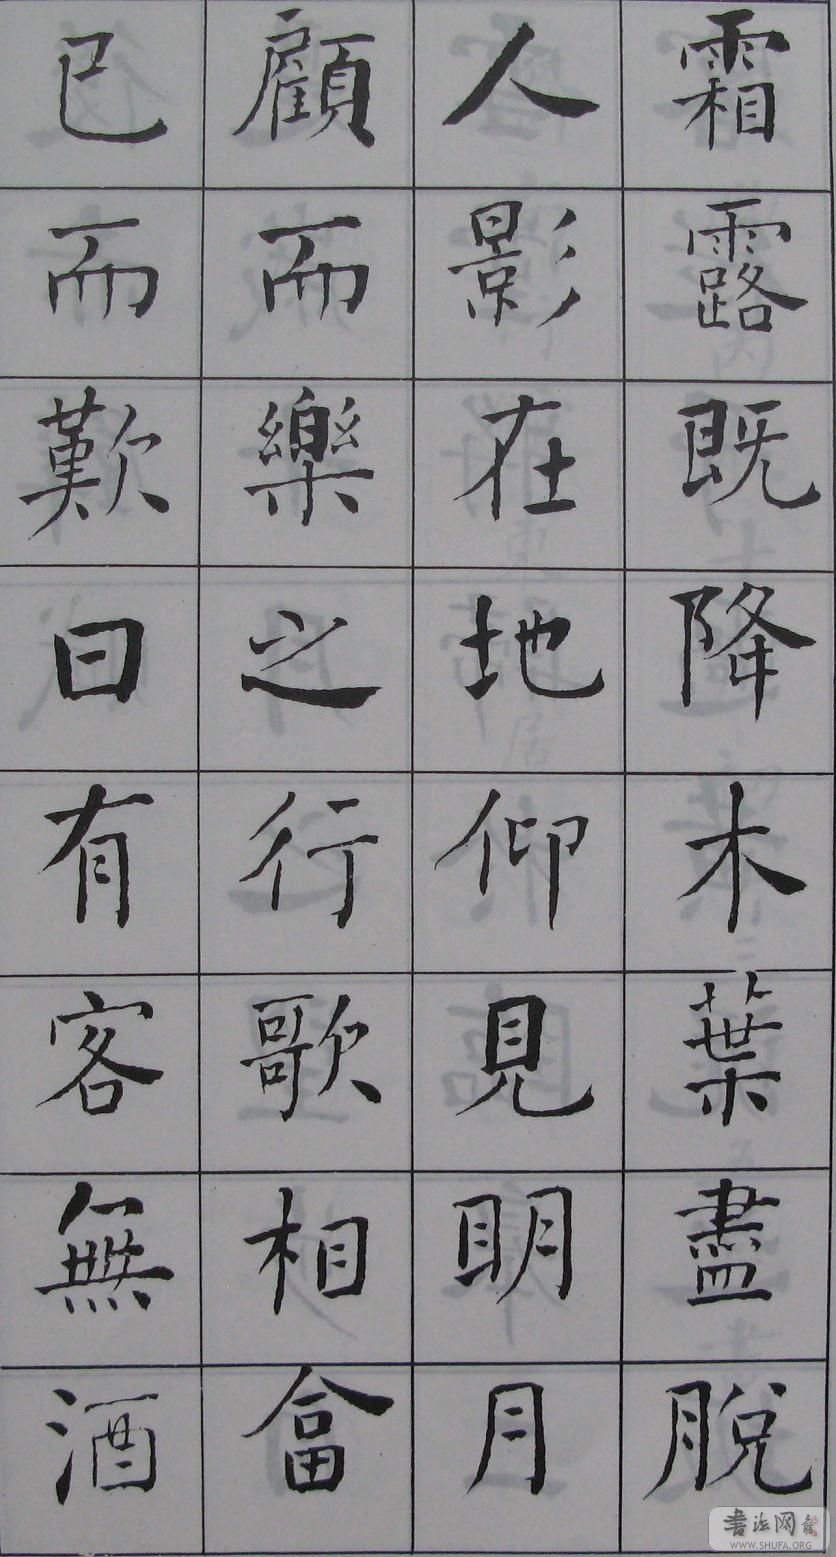 霜露既降木葉盡脱
人影在地仰見明月
顧而樂之行歌相畣
已而歎曰有客無酒
书法网
WWW.SHUFA.ORG